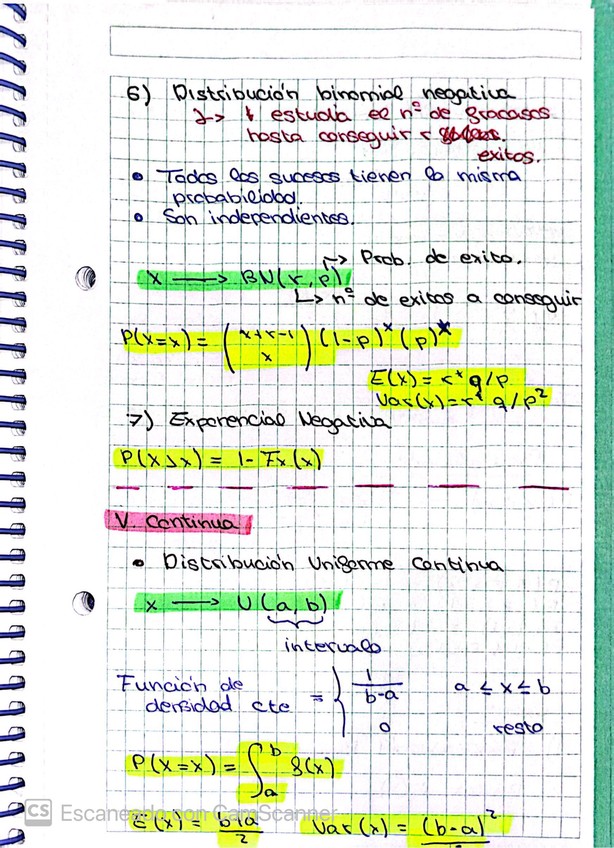 6) Distribución binomial negativa
↳ estudia el nº de fracasos
hasta conseguir r
exitos.
• Todos los sucesos tienen la misma
probabilidad.
• Son independientes.
→ Prob. de exito.
X → BN(r, p)
↳ nº de exitos a conseguir
P(X=x) = (x+r-1 / x) (1-p)^x (p)^r
E(x) = r* q/p
Var(x) = r* q/p²
7) Exponencial Negativa
P(X>x) = 1 - Fx(x)
V. Continua
• Distribución Uniforme Continua
X → U(a, b)
intervalo
Función de densidad cte = { 1/(b-a) a ≤ x ≤ b
0 resto
P(X=x) = ∫_a^b f(x)
CS Escaneado con CamScanner
E(x) = b+a/2 Var(x) = (b-a)²